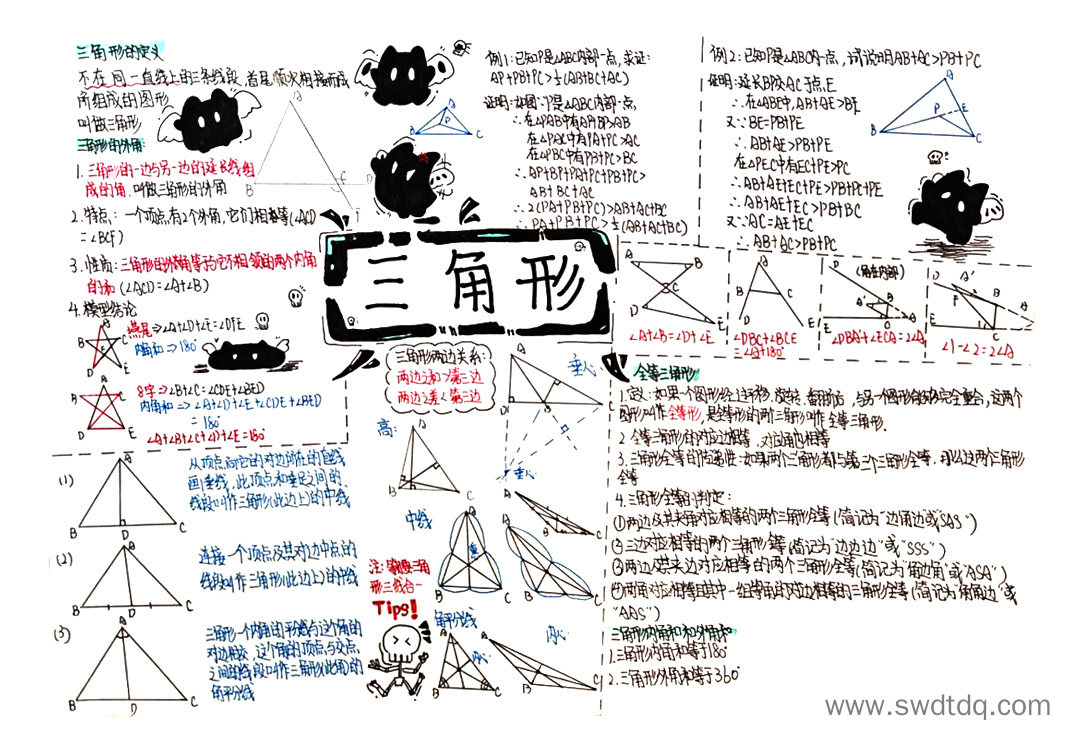 三角形的定义
不在同一直线上的三条线段 首尾顺次相接而成
所组成的图形
叫做三角形
三角形的外角:
1.三角形的一边与另一边的延长线组
成的角,叫做三角形的外角
2.特点:一个顶点,有2个外角,它们相等(∠ACD
=∠BCF)
3.性质:三角形的外角等于它不相邻的两个内角
的和(∠ACD=∠A+∠B)
4.模型结论
燕尾⇒∠A+∠D+∠E=∠DFE
内角和⇒180°
8字⇒∠B+∠C=∠CDE+∠BED
内角和⇒∠A+∠D+∠E+∠CDE+∠BED
=180°
∠A+∠B+∠C+∠D+∠E=180°
例1:已知P是△ABC内部一点,求证:
AP+PB+PC>½(AB+BC+AC)
证明:如图:P是△ABC内部一点,
∴在△PAB中有AP+BP>AB
在△PAC中有PA+PC>AC
在△PBC中有PB+PC>BC
∴AP+BP+PA+PC+PB+PC>
AB+BC+AC
∴2(PA+PB+PC)>AB+AC+BC
∴PA+PB+PC>½(AB+AC+BC)
例2:已知P是△ABC内一点,试说明AB+AC>PB+PC
证明:延长BP交AC于点E
∴在△ABE中,AB+AE>BE
又∵BE=PB+PE
∴AB+AE>PB+PE
在△PEC中有EC+PE>PC
∴AB+AE+EC+PE>PB+PE+PE
∴AB+AE+EC>PB+BC
又∵AC=AE+EC
∴AB+AC>PB+PC
三角形
∠A+∠B=∠D+∠E
∠DBC+∠BCE
=∠A+180°
(角在内部)
∠DBA'+∠ECA=2∠A
∠1-∠2=2∠A
三角形两边关系:
两边之和>第三边
两边之差<第三边
垂心
高:
垂心
中线
角平分线
内心
内心
(1)
从顶点向它的对边所在的直线
画垂线,此顶点和垂足之间的
线段叫作三角形(此边上)的中线
(2)
连接一个顶点及其对边中点的
线段叫作三角形(此边上)的中线
(3)
三角形一个内角的平分线与这个角的
对边相交,这个角的顶点与交点
之间的线段叫作三角形(此角)的
角平分线
注:等腰三角
形三线合一
Tips!
全等三角形
1.定义:如果一个图形经过平移,旋转,翻折后,与另一个图形能够完全重合,这两个
图形叫作全等形,是全等形的两个三角形叫作全等三角形.
2.全等三角形的对应边相等,对应角也相等
3.三角形全等的传递性:如果两个三角形都与第三个三角形全等,那么这两个三角形
全等
4.三角形全等的判定:
①两边及其夹角对应相等的两个三角形全等(简记为"边角边或"SAS")
②三边对应相等的两个三角形全等(简记为"边边边"或"SSS")
③两角及其夹边对应相等的两个三角形全等(简记为"角边角"或"ASA")
④两角对应相等且其中一组等角的对边相等的三角形全等(简记为"角角边"或
"AAS")
三角形内角和和外角和
1.三角形内角和等于180°
2.三角形外角和等于360°
www.swdtdq.com